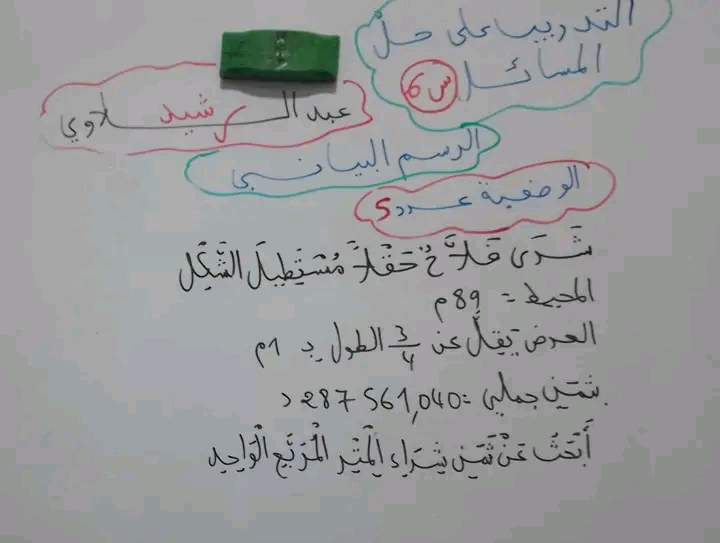 التدريب على حل
المسائل س6
عبد الرشيد لاوي
الرسم البياني
الوضعية عدد 5
شَرَى فَلَّاحٌ حَقْلًا مُسْتَطِيلَ الشَّكْلِ
المحيط = 89م
العرض يَقِلُّ عن 3/4 الطول بـ 1م
بثمن جملي = 287 561,040 د
أَبْحَثُ عَنْ ثَمَنِ شِرَاءِ الْمِتْرِ الْمُرَبَّعِ الْوَاحِدِ